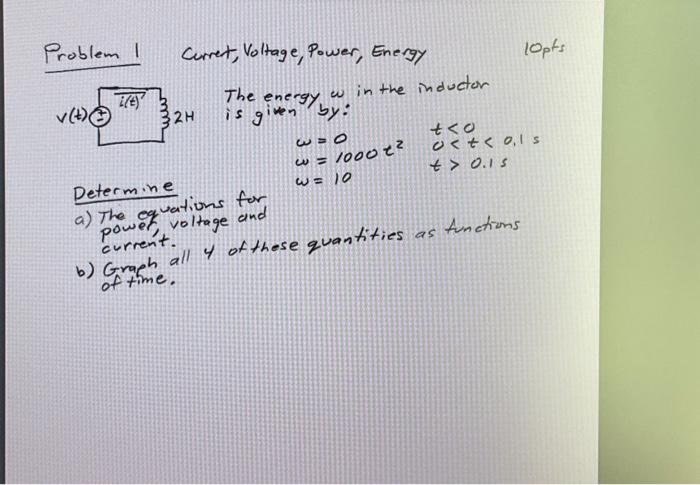 Problem 1 Curret, Voltage, Power, Energy 10pts
The energy w in the inductor
is given by:
v(t) + i(t) 2H
w = 0 t < 0
w = 1000 t² 0 < t < 0.1 s
w = 10 t > 0.1 s
Determine
a) The equations for
power, voltage and
current.
b) Graph all 4 of these quantities as functions
of time.